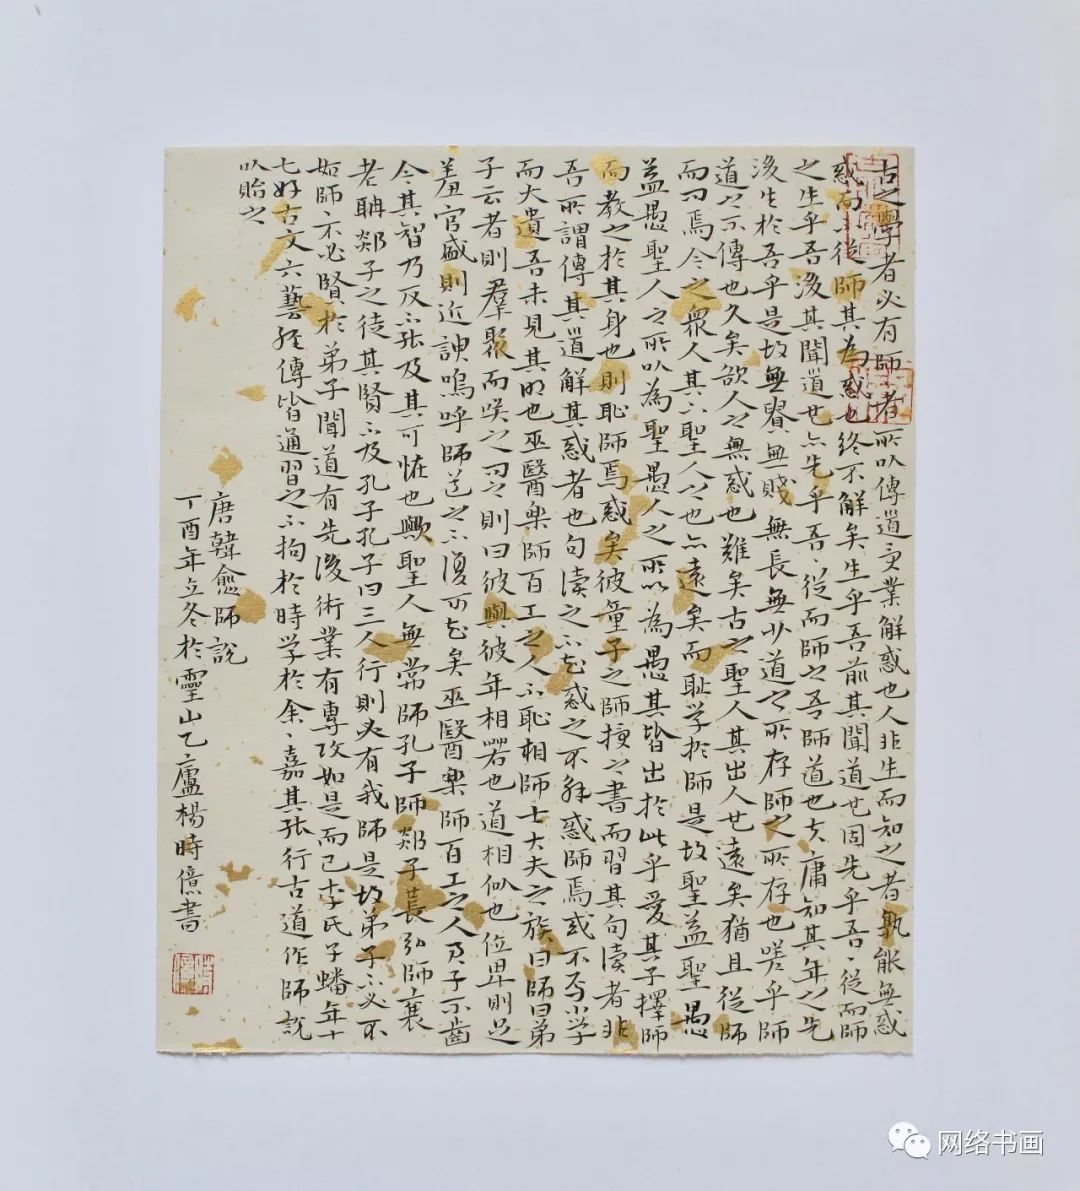 古之學者必有師、者所以傳道受業解惑也人非生而知之者孰能無惑
惑而不從師其為惑也終不解矣生乎吾前其聞道也固先乎吾、從而師
之生乎吾後其聞道也亦先乎吾、從而師之吾師道也夫庸知其年之先
後生於吾乎是故無貴無賤無長無少道之所存師之所存也嗟乎師
道之不傳也久矣欲人之無惑也難矣古之聖人其出人也遠矣猶且從師
而問焉今之衆人其下聖人之也亦遠矣而耻学於師是故聖益聖愚
益愚聖人之所以為聖愚人之所以為愚其皆出於此乎愛其子擇師
而教之於其身也則恥師焉惑矣彼童子之師授之書而習其句讀者非
吾所謂傳其道解其惑者也句讀之不知惑之不解惑師焉或不焉小学
而大遺吾未見其明也巫醫樂師百工之人不恥相師士大夫之族曰師曰弟
子云者則羣聚而笑之問之則曰彼與彼年相若也道相似也位卑則足
羞官盛則近諛嗚呼師道之不復可知矣巫醫樂師百工之人君子不齒
今其智乃反不能及其可怪也歟聖人無常師孔子師郯子萇弘師襄
老聃郯子之徒其賢不及孔子孔子曰三人行則必有我師是故弟子不必不
如師、不必賢於弟子聞道有先後術業有專攻如是而已李氏子蟠年十
七好古文六藝經傳皆通習之不拘於時学於余、嘉其能行古道作師說
以貽之
唐韓愈師說
丁酉年立冬於靈山乙廬楊時億書
网络书画